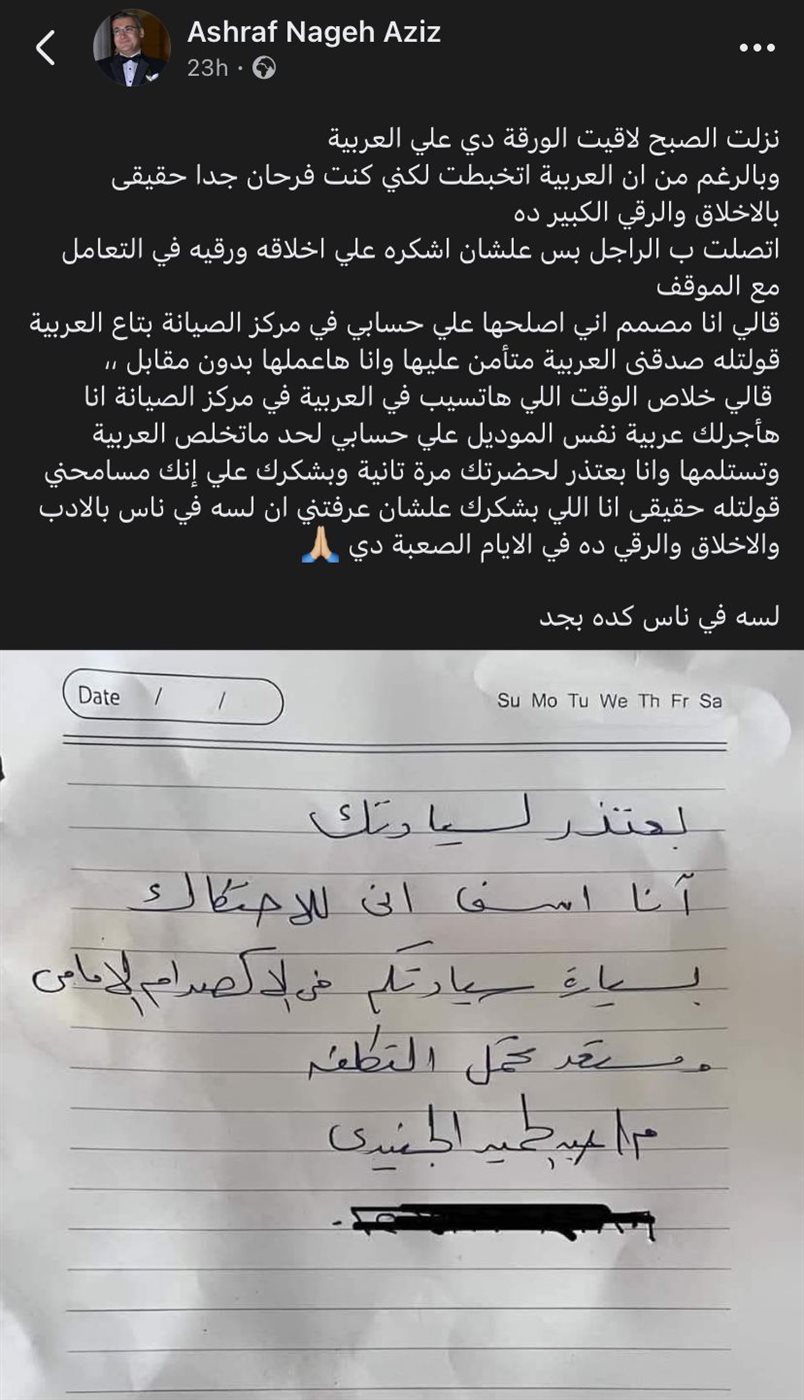 Ashraf Nageh Aziz
23h
نزلت الصبح لاقيت الورقة دي علي العربية
وبالرغم من ان العربية اتخبطت لكني كنت فرحان جدا حقيقى
بالاخلاق والرقي الكبير ده
اتصلت ب الراجل بس علشان اشكره علي اخلاقه ورقيه في التعامل
مع الموقف
قالي انا مصمم اني اصلحها علي حسابي في مركز الصيانة بتاع العربية
قولتله صدقنى العربية متأمن عليها وانا هاعملها بدون مقابل ،،
قالي خلاص الوقت اللي هاتسيب في العربية في مركز الصيانة انا
هأجرلك عربية نفس الموديل علي حسابي لحد ماتخلص العربية
وتستلمها وانا بعتذر لحضرتك مرة تانية وبشكرك علي إنك مسامحني
قولتله حقيقى انا اللي بشكرك علشان عرفتني ان لسه في ناس بالادب
والاخلاق والرقي ده في الايام الصعبة دي 🙏🏼
لسه في ناس كده بجد
Date / /
Su Mo Tu We Th Fr Sa
بعتذر لسيادتك
أنا اسف انى للاحتكاك
بسيارة سيادتكم فى الاكصدام الامامى
ومستعد تحمل التكلفه
م/ عبد الحميد الجنيدى